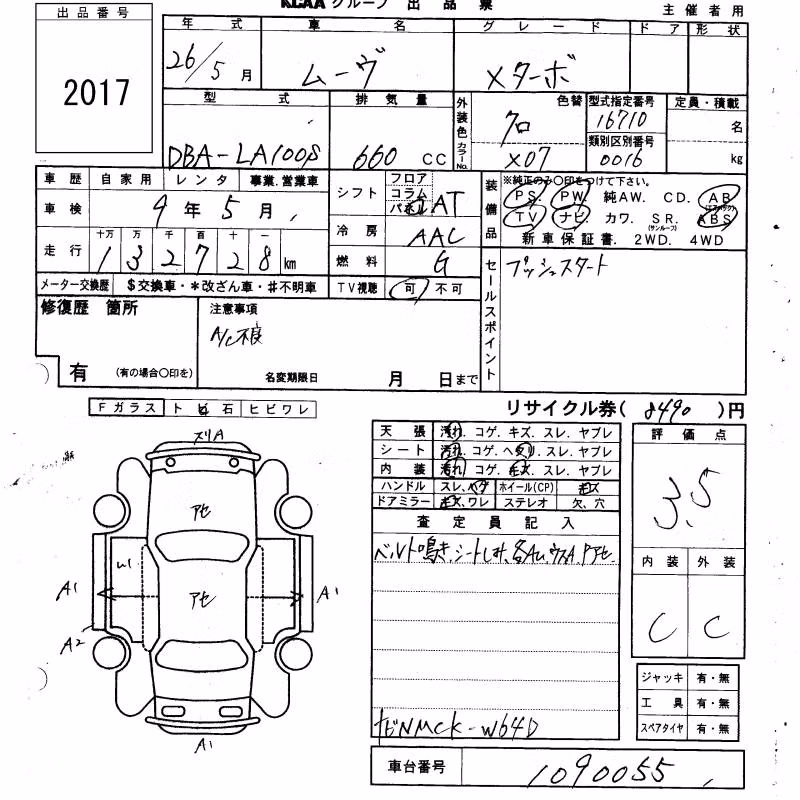 KCAA グループ 出 品 票
主 催 者 用
出 品 番 号
2017
年 式 車 名 グ レ ー ド ド ア 形 状
26/5 月 ムーヴ Xターボ
型 式 排 気 量 外装色 カラーNo. 色替 型式指定番号 定員・積載
DBA-LA100S 660 CC クロ X07 16710 名
類別区別番号
0016 kg
車 歴 自 家 用 レ ン タ 事業.営業車
車 検 9 年 5 月
走 行 十万 万 千 百 十 一
1 3 2 7 2 8 km
シフト フロア コラム パネル AT
冷 房 AAC
燃 料 G
メーター交換歴 $交換車・*改ざん車・#不明車 TV視聴 可 不 可
装備品 ※純正のみ〇印をつけて下さい。
PS. PW. 純AW. CD. AB (エアバック)
TV ナビ カワ. SR. (サンルーフ) ABS
新 車 保 証 書. 2WD. 4WD
セールスポイント
プッシュスタート
修復歴 箇所
有 (有の場合〇印を)
注意事項
A/C不良
名変期限日 月 日まで
リサイクル券( 8490 )円
Fガラス ト ビ 石 ヒビワレ
ズリA
アセ
アセ
W1
A1
A2
A1
A1
天 張 汚れ. コゲ. キズ. スレ. ヤブレ
シート 汚れ. コゲ. ヘタリ. スレ. ヤブレ
内 装 汚れ. コゲ. キズ. スレ. ヤブレ
ハンドル スレ. ハゲ ホイール(CP) キズ
ドアミラー キズ.ワレ ステレオ 欠. 穴
査 定 員 記 入
ベルト鳴き、シートしみ、各AU、ウスA、Pアセ
ナビNMCK-W64D
評 価 点
3.5
内 装 外 装
C C
ジャッキ 有・無
工 具 有・無
スペアタイヤ 有・無
車台番号 1090055